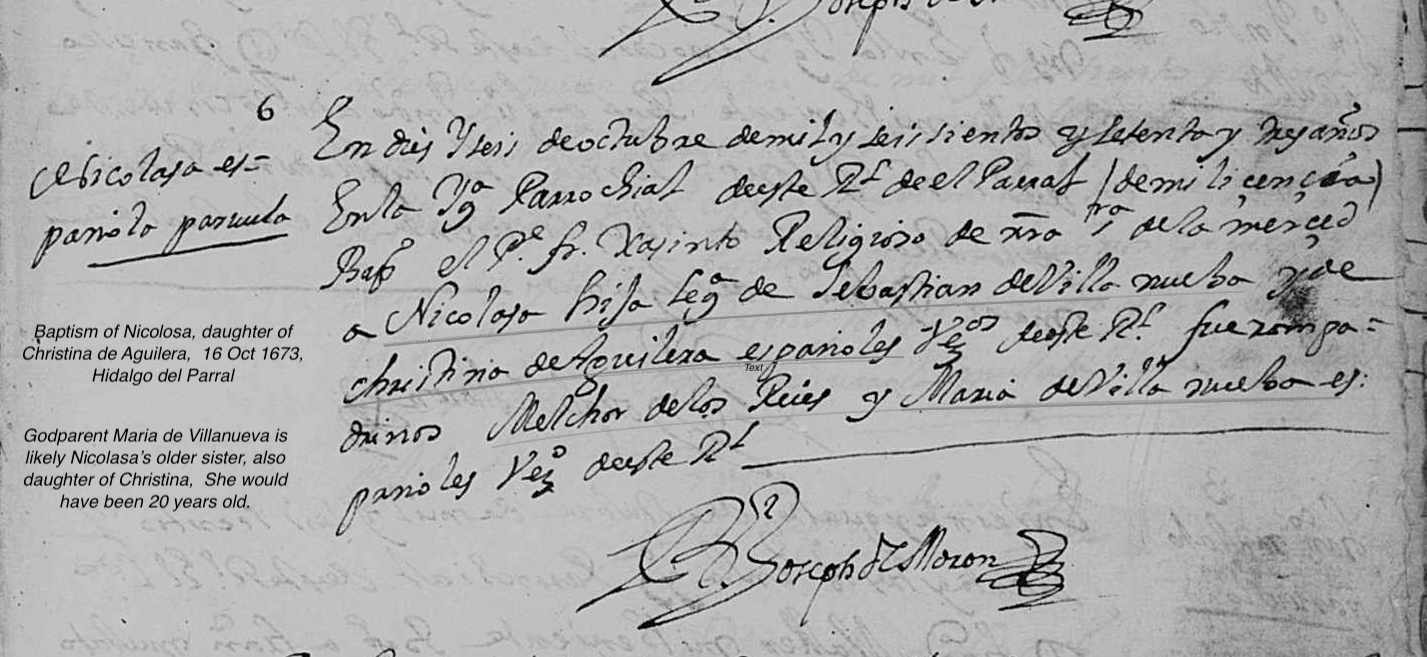 6
Nicolasa es=
pañola parvula
En dies y seis de octubre de mil y seissientos y setenta y tres años
En la Yga Parrochial deeste Rl de el Parral (de mi licençia)
Bapo el Pe fr. Xasinto Religioso de nra sra de la merced
a Nicolasa hija lega de Sebastian de Villa nueba y de
christina de Aguilera españoles Vezos deeste Rl fueron pa=
drinos Melchor de los Reies y Maria de Villa nueba es:
pañoles Vezo deeste Rl
Joseph de Moron
Baptism of Nicolosa, daughter of
Christina de Aguilera, 16 Oct 1673,
Hidalgo del Parral
Text
Godparent Maria de Villanueva is
likely Nicolasa's older sister, also
daughter of Christina, She would
have been 20 years old.